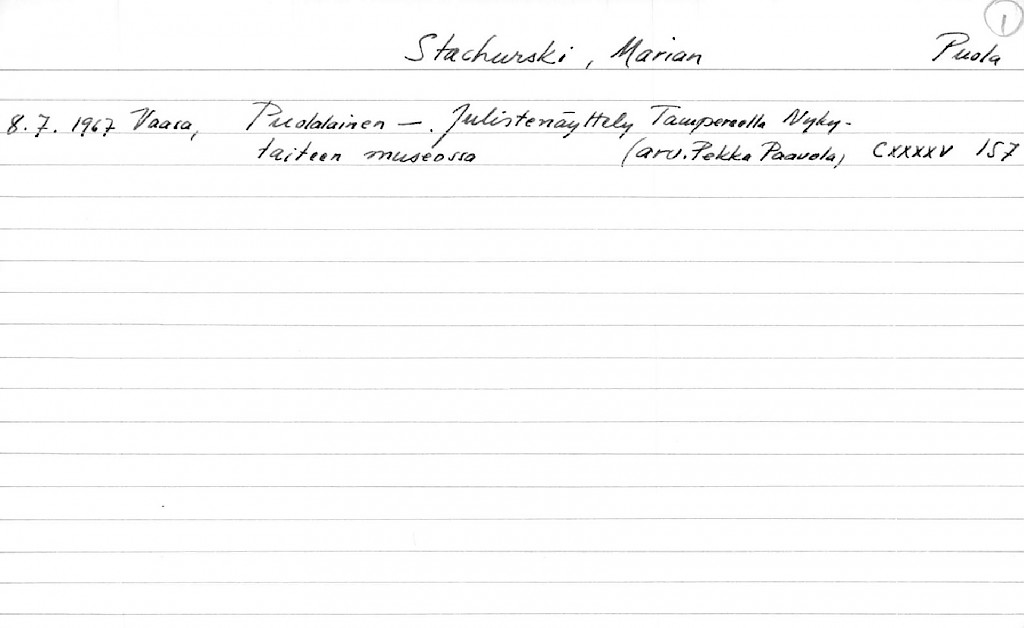 1
Stachurski, Marian Puola
8.7. 1967 Vaasa, Puolalainen —. Julistenäyttely Tampereella Nyky-
taiteen museossa (arv. Pekka Paavola) CXXXXV 157